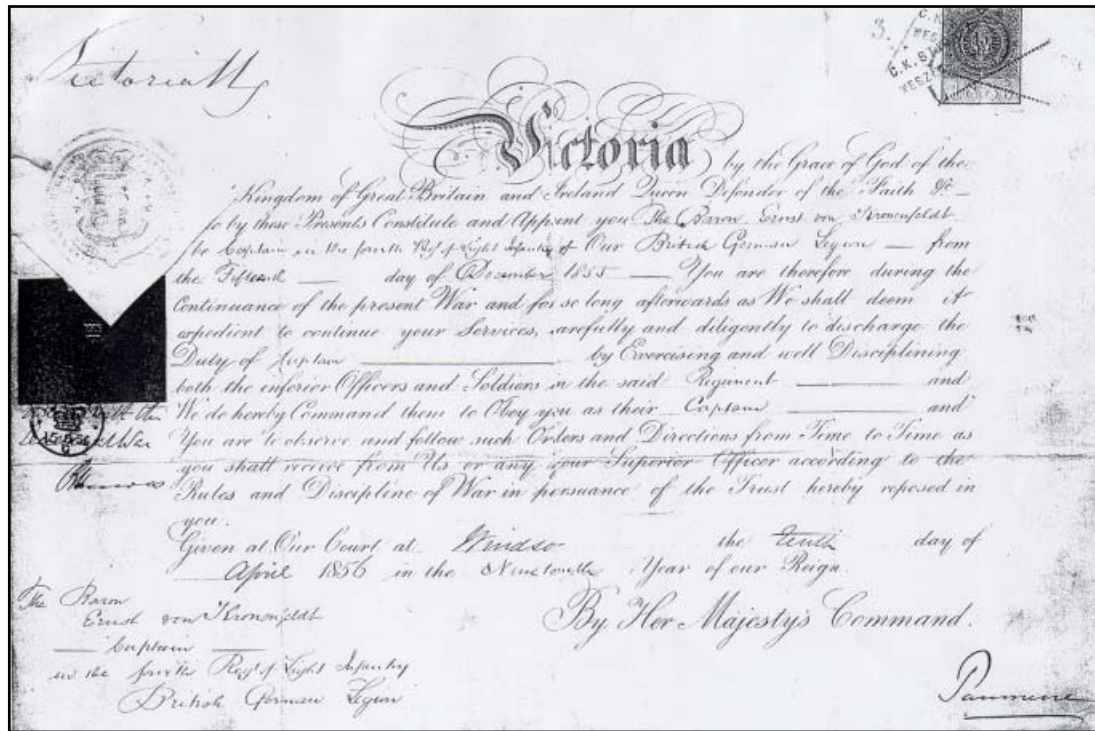 Victoria R
3.
C.K.
C.K.
15
Victoria by the Grace of God of the
Kingdom of Great Britain and Ireland Queen Defender of the Faith &c
do by these Presents Constitute and Appoint you The Baron Ernst von Kronenfeldt
to be Captain in the fourth Regt of Light Infantry of Our British German Legion — from
the Fifteenth — day of December 1855 — You are therefore during the
Continuance of the present War and for so long afterwards as We shall deem it
expedient to continue your Services, carefully and diligently to discharge the
Duty of Captain — by Exercising and well Disciplining
both the inferior Officers and Soldiers in the said Regiment — and
We do hereby Command them to Obey you as their Captain — and
You are to observe and follow such Orders and Directions from Time to Time as
you shall receive from Us or any your Superior Officer according to the
Rules and Discipline of War in persuance of the Trust hereby reposed in
you.
Given at Our Court at Windsor the tenth day of
April 1856 in the Nineteenth Year of our Reign.
By Her Majesty's Command.
The Baron
Ernst von Kronenfeldt
— Captain —
in the fourth Regt of Light Infantry
British German Legion
Panmure